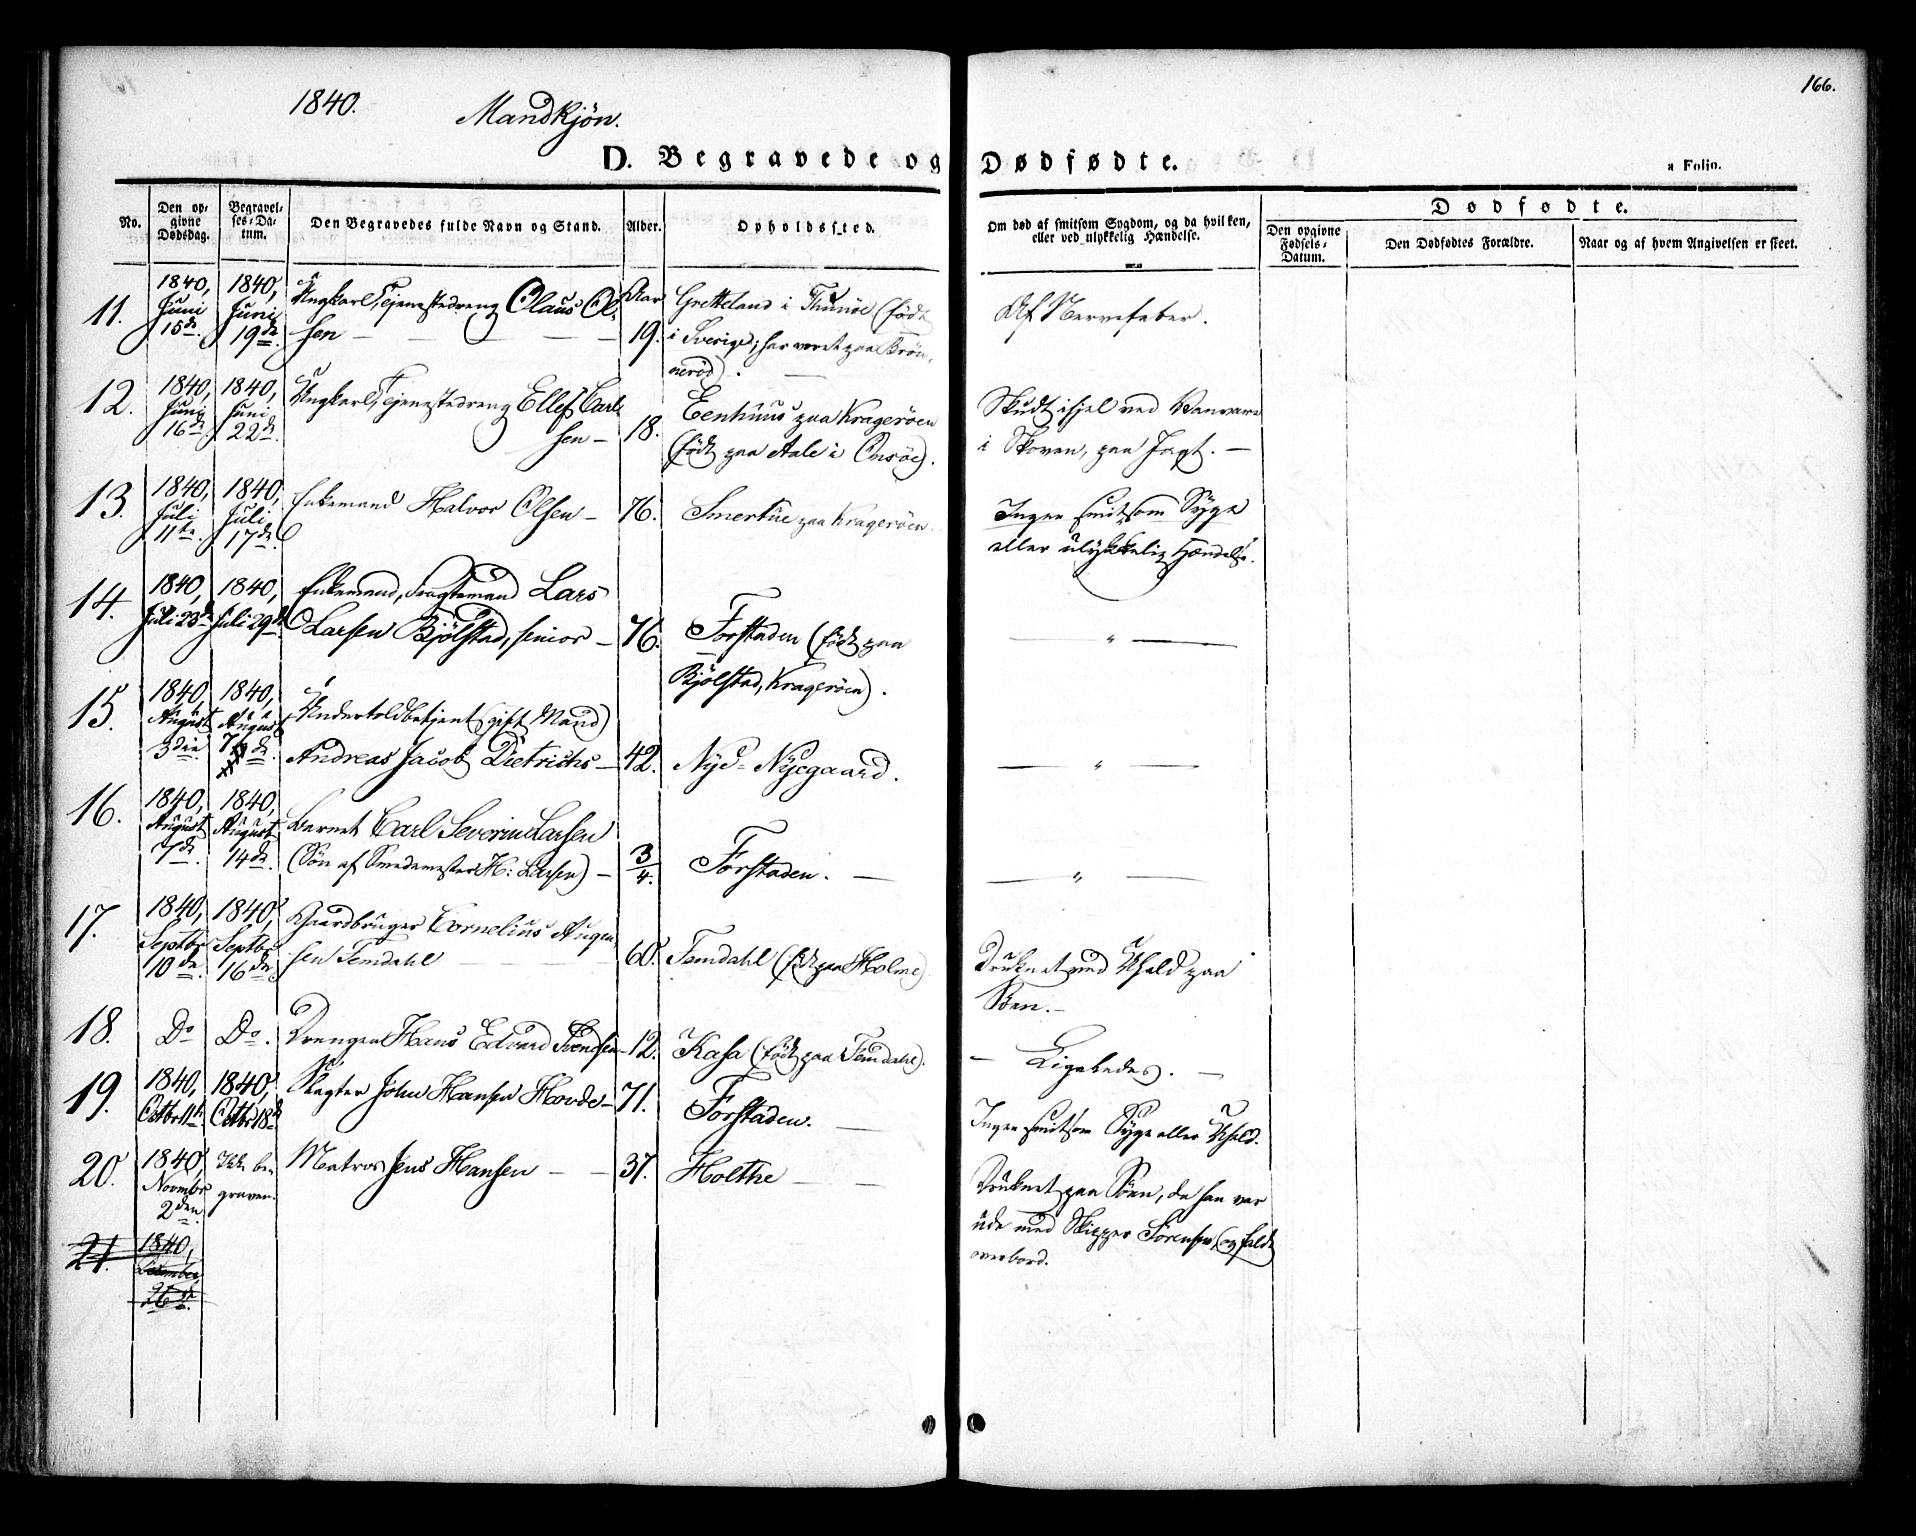 166.
1840. Mandkjön.
D. Begravede og Dødfødte.
a Folio.
No.
Den opgivne Dødsdag.
Begravelses-Datum.
Den Begravedes fulde Navn og Stand.
Alder.
Opholdssted.
Om død af smitsom Sygdom, og da hvilken, eller ved ulykkelig Hændelse.
Dødfødte.
Den opgivne Fødsels-Datum.
Den Dødfødtes Forældre.
Naar og af hvem Angivelsen er skeet.
11. 1840, Juni 15de. 1840, Juni 19de. Ungkarl, Tjenestedreng Olaus Ol-
sen — 19. Gretteland i Thunöe (født
i Sverige, har været paa Brön-
neröd). Af Nervefeber.
12. 1840, Juni 16de. 1840, Juni 22de. Ungkarl, Tjenestedreng Ellef Carl-
sen — 18. Eenhuus paa Kragerøen
(født paa Aale i Onsöe).
Skudt ihjel ved Vanvare
i Skoven, paa Jagt. —
13. 1840, Juli 11te. 1840, Juli 17de. Enkemand Halvor Olsen — 76. Smertue paa Kragerøen.
Ingen smitsom Syge
eller ulykkelig Hændelse.
14. 1840, Juli 23de 1840, Juli 29de Enkemand, Fragtemand Lars
Larsen Bjölstad, senior — 76. Forstaden (født paa
Bjölstad, Kragerøen).
— " —
15. 1840, August 3die. 1840, August 7de. Undertoldbetjent (gift Mand)
Andreas Jacob Dietrichs — 42. Nye-Nyegaard.
— " —
16. 1840, August 7de. 1840, August 14de. Barnet Carl Severin Larsen
(Sön af Smedemester H: Larsen) — 3/4. Forstaden. —
— " —
17. 1840, Septbr 10de. 1840, Septbr 16de Gaardbruger Cornelius Augen-
sen Femdahl — 60. Femdahl (født paa Holme).
Druknet ved Uheld paa
Söen. —
18. Do Do. Drengen Hans Edvard Svendsen — 12. Kasa (født paa Femdahl).
— Ligeledes. —
19. 1840, Octbr 11te 1840, Octbr 18de Slagter John Hansen Hovde — 71. Forstaden. —
Ingen smitsom Syge eller Uheld.
20. 1840, Novmbr 2den. Ikke begraven. Matros Jens Hansen — 37. Holthe —
Druknet paa Söen, da han var
ude med Skipper Sörensen, og faldt
overbord.
21. 1840, December 26de.